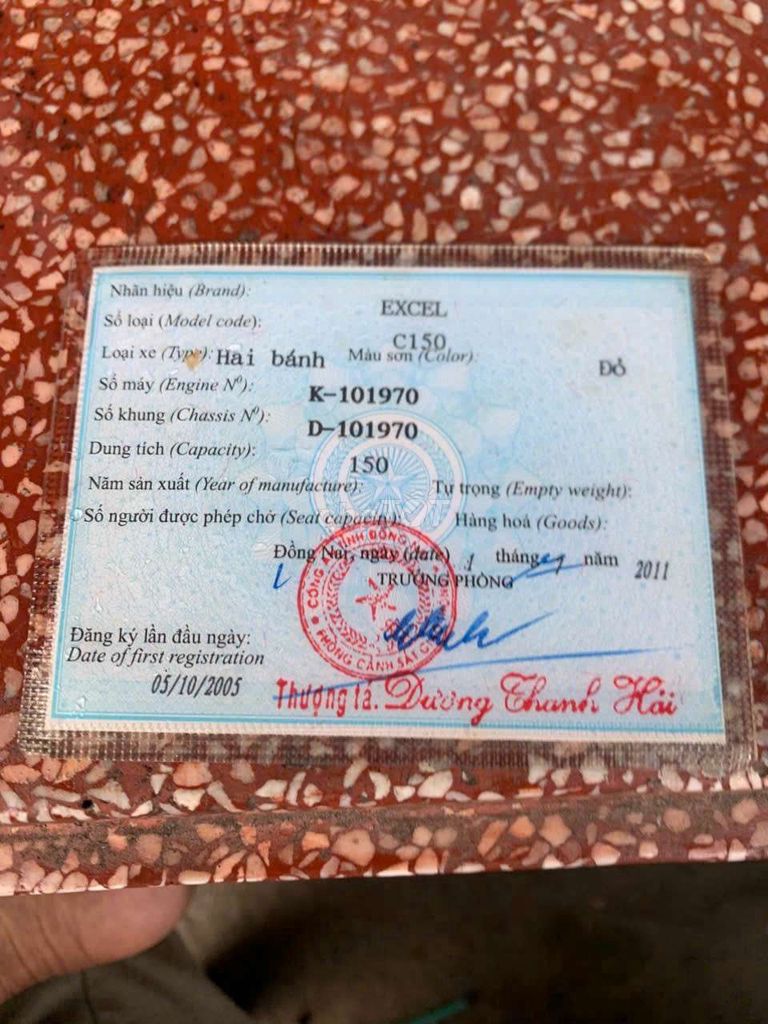 Nhãn hiệu (Brand): EXCEL
Số loại (Model code): C150
Loại xe (Type): Hai bánh Màu sơn (Color): Đỏ
Số máy (Engine Nº): K-101970
Số khung (Chassis Nº): D-101970
Dung tích (Capacity): 150
Năm sản xuất (Year of manufacture): Tự trọng (Empty weight):
Số người được phép chở (Seat capacity): Hàng hoá (Goods):
Đồng Nai, ngày (date) tháng năm 2011
TRƯỞNG PHÒNG
CÔNG AN TỈNH ĐỒNG
PHÒNG CẢNH SÁT
Đăng ký lần đầu ngày:
Date of first registration
05/10/2005
Thượng tá. Dương Thanh Hải